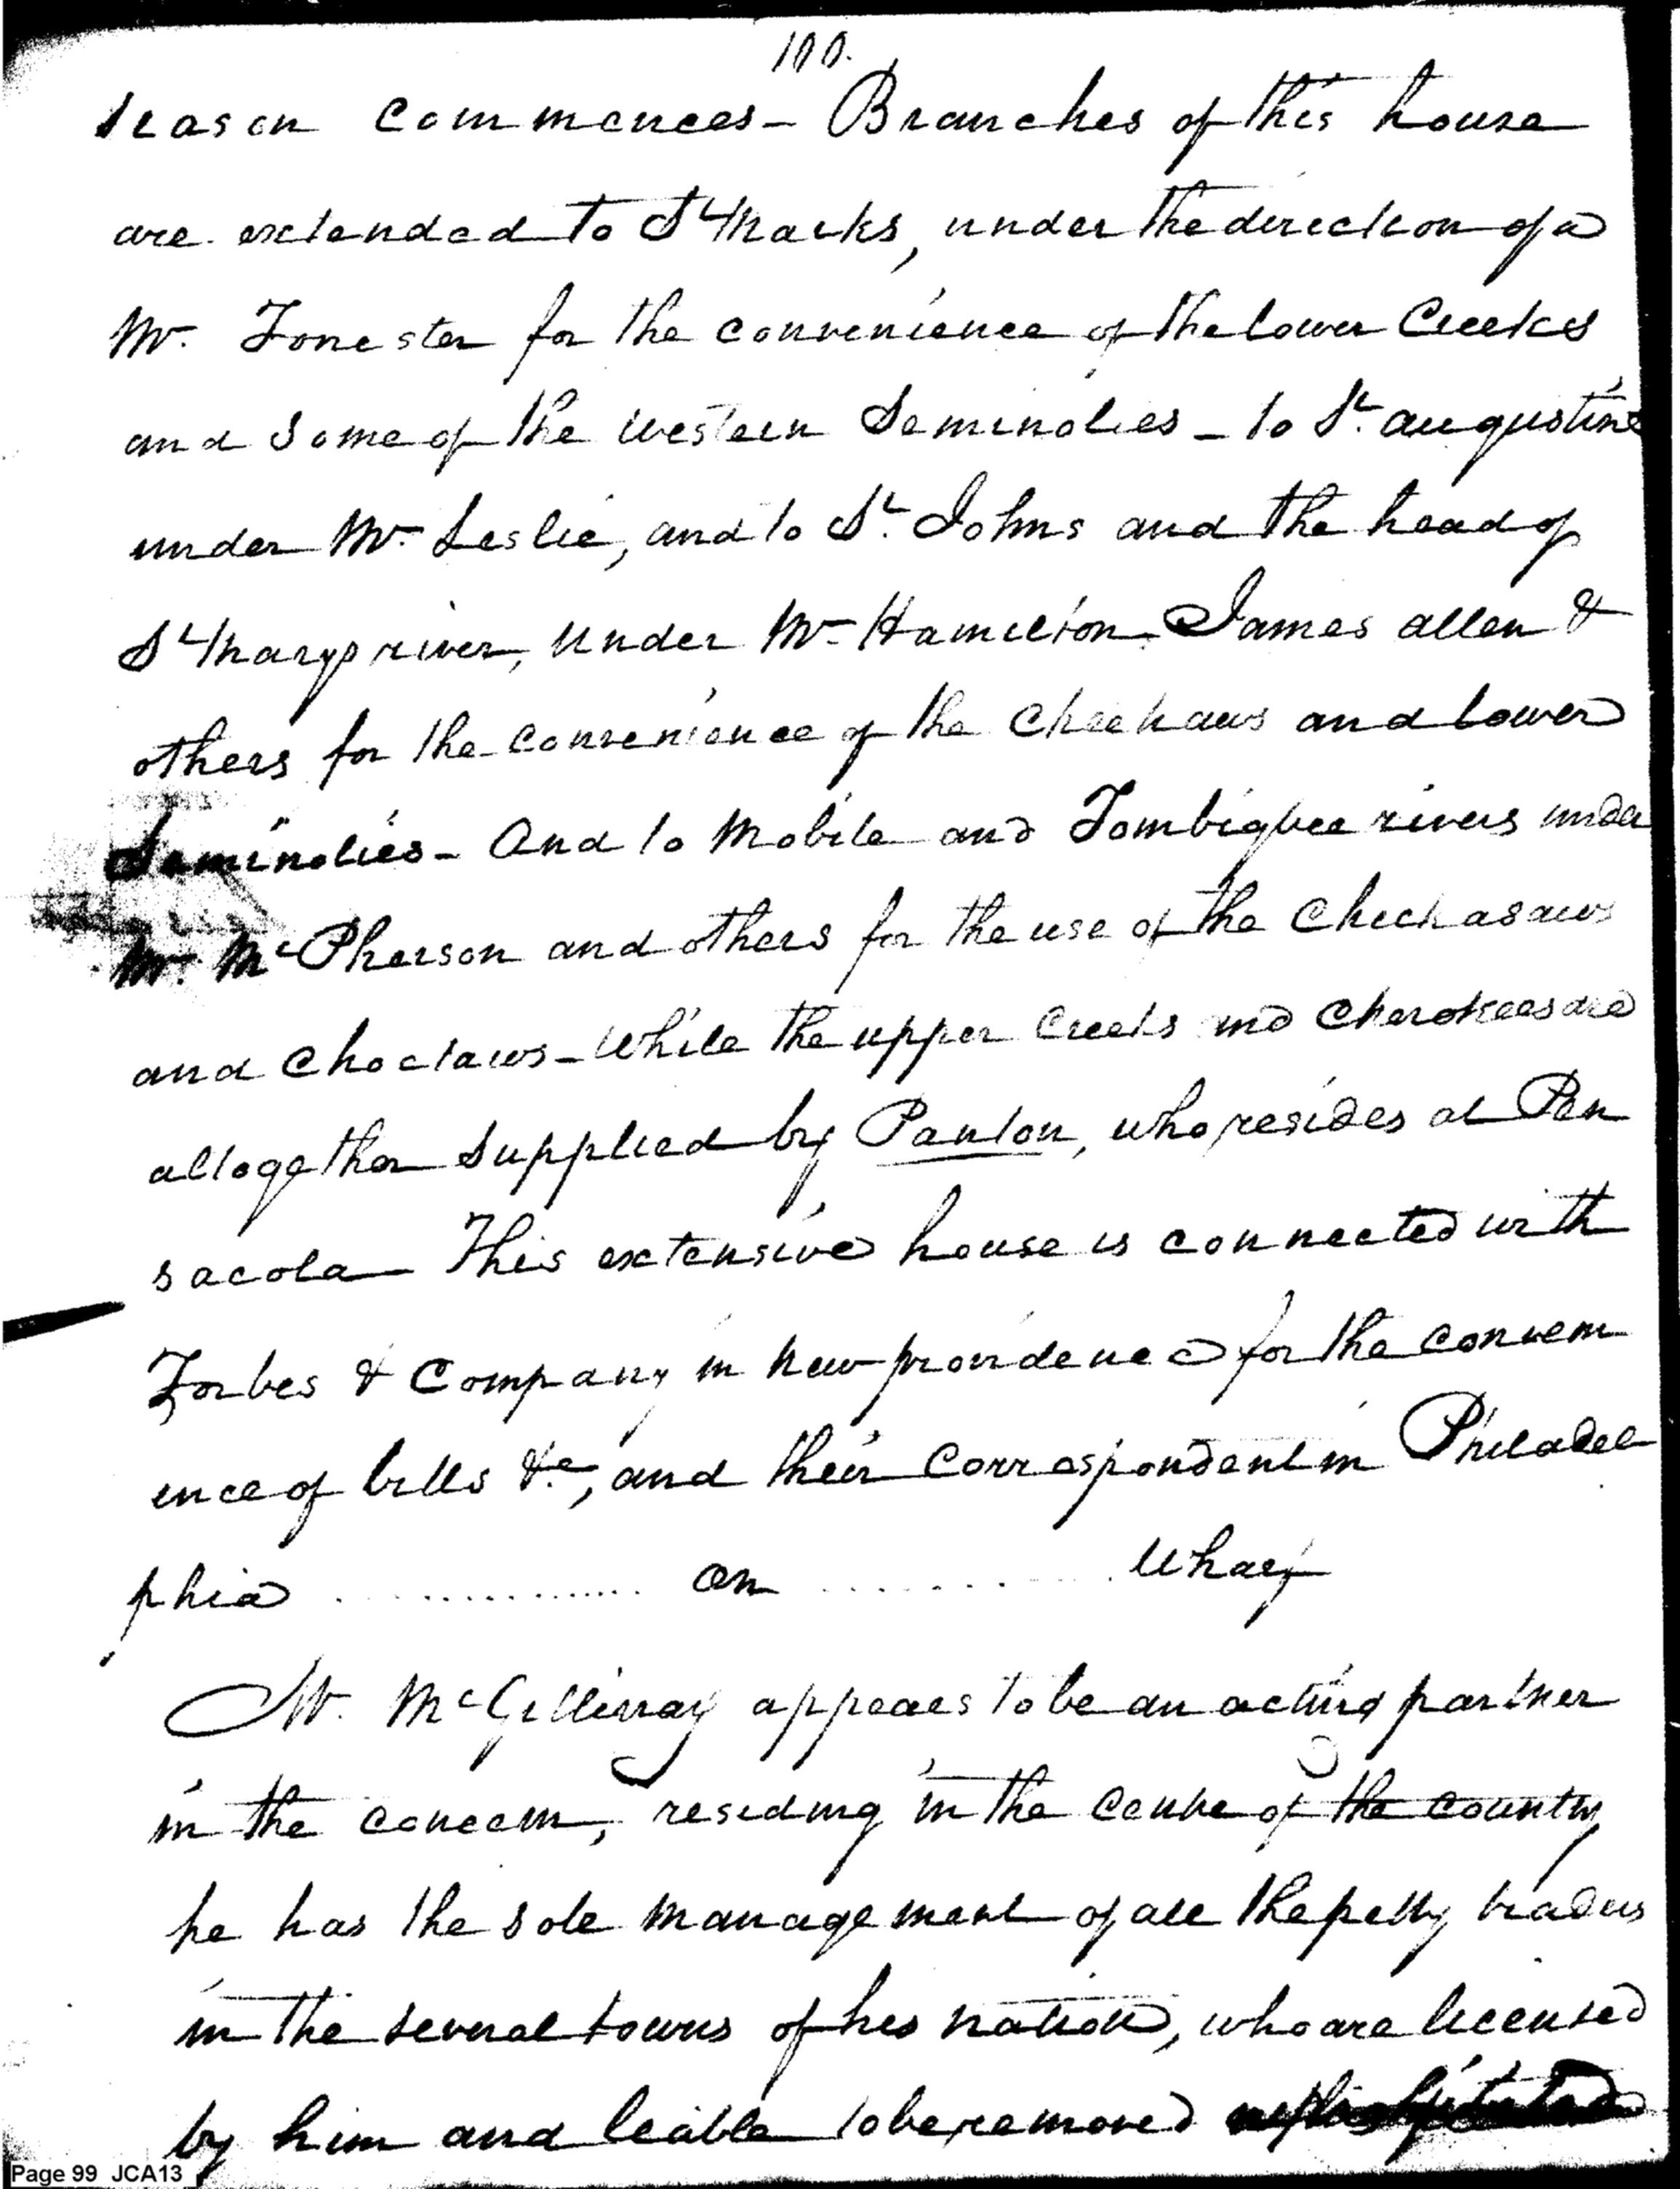 100.
season commences - Branches of this house
are extended to St Marks, under the direction of a
Mr. Forrester for the convenience of the lower Creeks
and some of the western Seminolies - to St. augustine
under Mr. Leslie, and to St. Johns and the head of
St Marys river, under Mr Hamilton - James allen &
others for the convenience of the Cheehaws and lower
Seminolies - And to Mobile and Tombigbee rivers under
Mr. McPherson and others for the use of the Chickasaws
and Choctaws - While the upper Creeks and Cherokees are
altogether supplied by Panton, who resides at Pen
sacola - This extensive house is connected with
Forbes & Company in new providence for the conveni
ence of bills &c, and their correspondent in Philadel
phia .............. on .......... Wharf
Mr. McGillivray appears to be an acting partner
in the concern, residing in the centre of the country
he has the sole management of all the petty traders
in the several towns of his nation, who are licensed
by him and leable to be removed
Page 99 JCA13